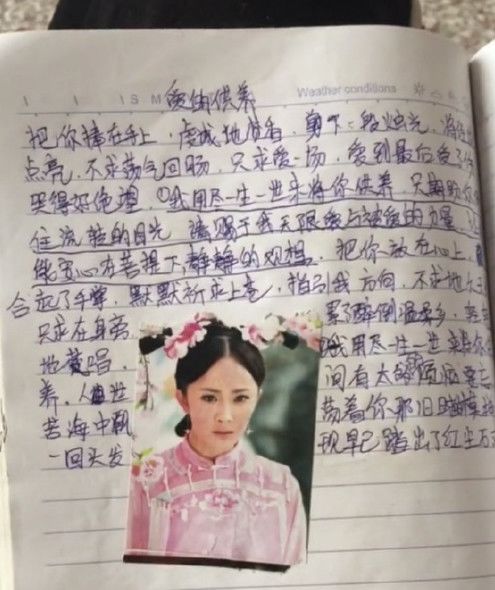 S M
Weather conditions
爱的供养
把你捧在手上，虔诚地焚香，剪下一段烛光，将
点亮，不求荡气回肠，只求爱一场，爱到最后受了
哭得好绝望，我用尽一生一世来将你供养，只期盼你
住流转的目光，请赐于我无限爱与被爱的力量，让
能安心在菩提下静静的观想。把你放在心上，
合起了手掌，默默祈求上苍，指引我方向，不求地久
只求在身旁 累了醉倒温柔乡，
地黄唱， 我用尽一生一世来将你
养，人世 间有太的烦恼要忘
苦海中飘 荡着你那旧时模样
一回头发 现早已踏出了红尘万